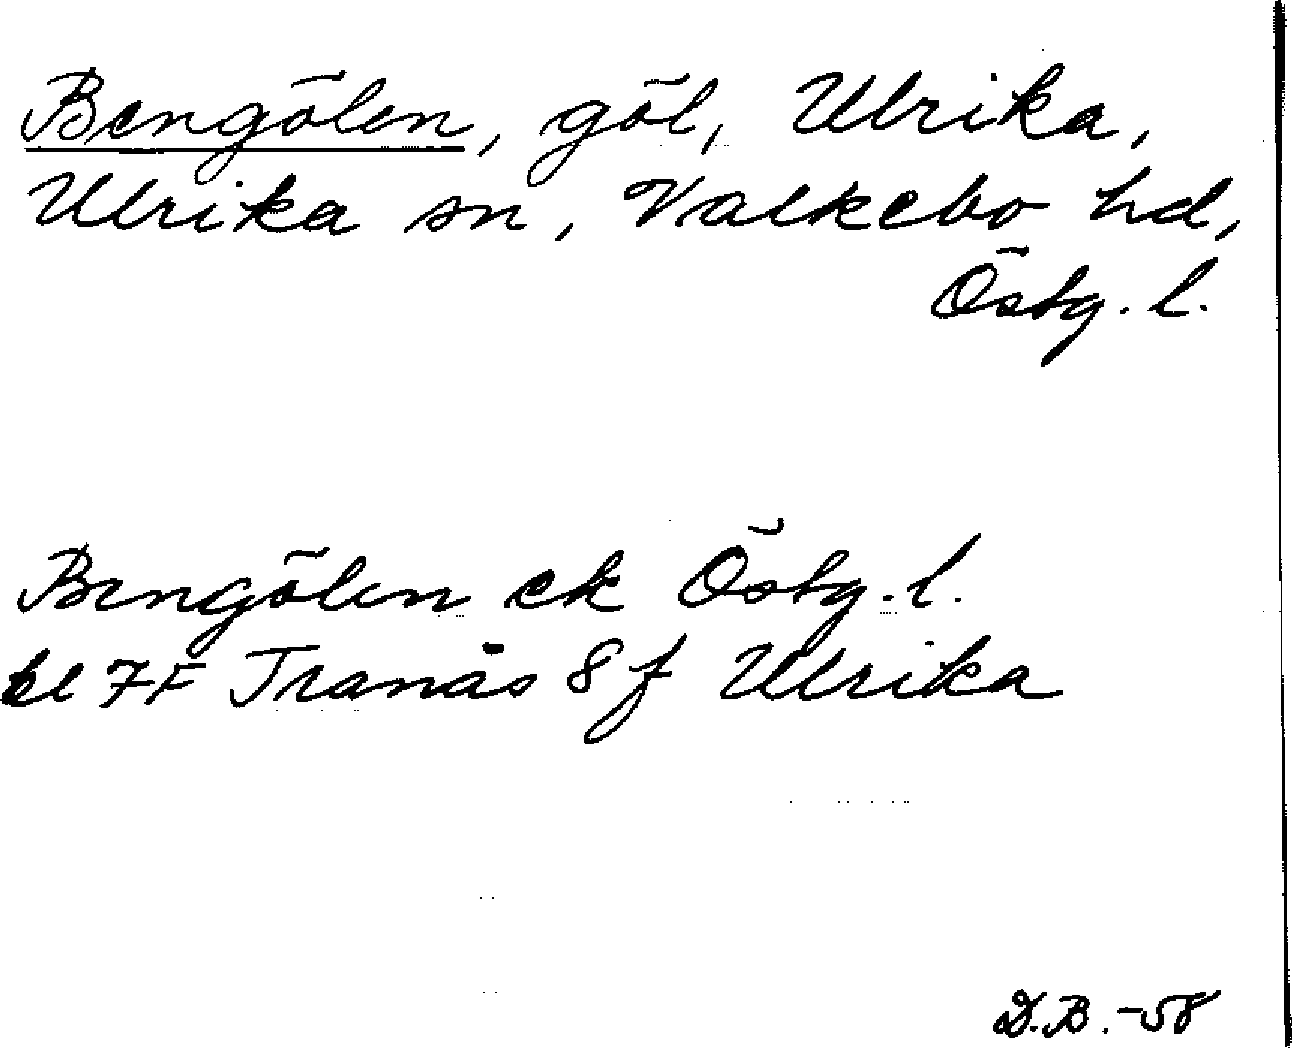 Bengölen, göl, Ulrika,
Ulrika sn, Valkebo hd,
Östg. l.
Bengölen ek Östg. l.
bl 7F Tranås 8 f Ulrika
D.B. -58